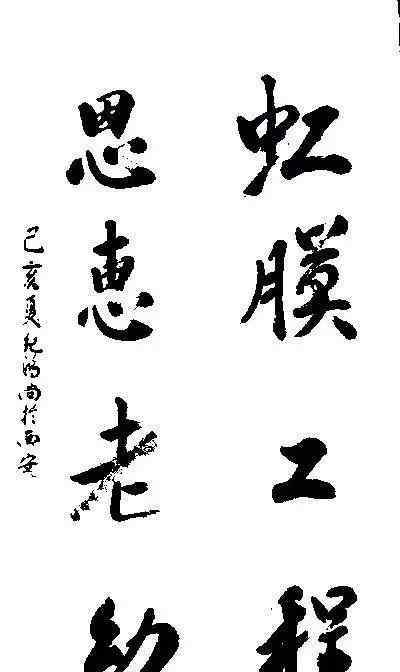 虹膜工程
恩惠老幼
己亥夏纪鸿尚於西安